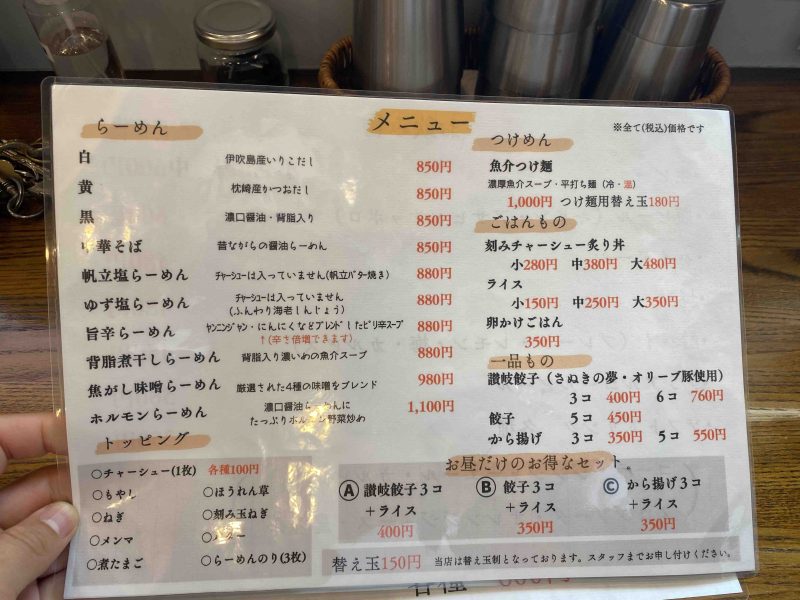 メニュー
※全て(税込)価格です
らーめん
白 伊吹島産いりこだし 850円
黄 枕崎産かつおだし 850円
黒 濃口醤油・背脂入り 850円
中華そば 昔ながらの醤油らーめん 850円
帆立塩らーめん チャーシューは入っていません(帆立バター焼き) 880円
ゆず塩らーめん チャーシューは入っていません 880円
(ふんわり海老しんじょう)
旨辛らーめん ヤンニンジャン・にんにくなどブレンドしたピリ辛スープ 880円
↑(辛さ倍増できます)
背脂煮干しらーめん 背脂入り濃いめの魚介スープ 880円
焦がし味噌らーめん 厳選された4種の味噌をブレンド 980円
ホルモンらーめん 濃口醤油らーめんに 1,100円
たっぷりホルモン野菜炒め
トッピング
○チャーシュー(1枚) 各種100円
○もやし ○ほうれん草
○ねぎ ○刻み玉ねぎ
○メンマ
○煮たまご ○らーめんのり(3枚)
つけめん
魚介つけ麺
濃厚魚介スープ・平打ち麺(冷・温)
1,000円 つけ麺用替え玉180円
ごはんもの
刻みチャーシュー炙り丼
小280円 中380円 大480円
ライス
小150円 中250円 大350円
卵かけごはん
350円
一品もの
讃岐餃子(さぬきの夢・オリーブ豚使用)
3コ 400円 6コ 760円
餃子 5コ 450円
から揚げ 3コ 350円 5コ 550円
お昼だけのお得なセット。
Ⓐ 讃岐餃子3コ Ⓑ 餃子3コ Ⓒ から揚げ3コ
+ライス +ライス +ライス
400円 350円 350円
替え玉150円 当店は替え玉制となっております。スタッフまでお申し付けください。